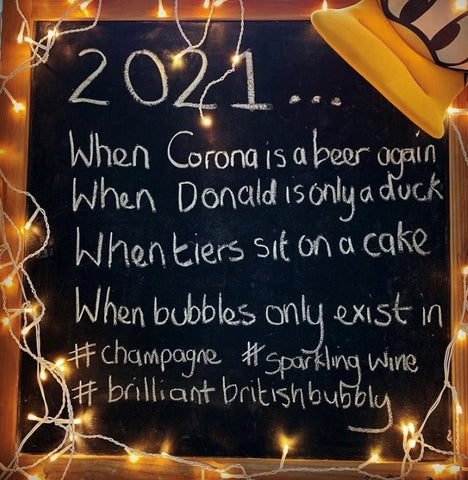 2021...
When Corona is a beer again
When Donald is only a duck
When tiers sit on a cake
When bubbles only exist in
#champagne #sparkling wine
#brilliantbritishbubbly